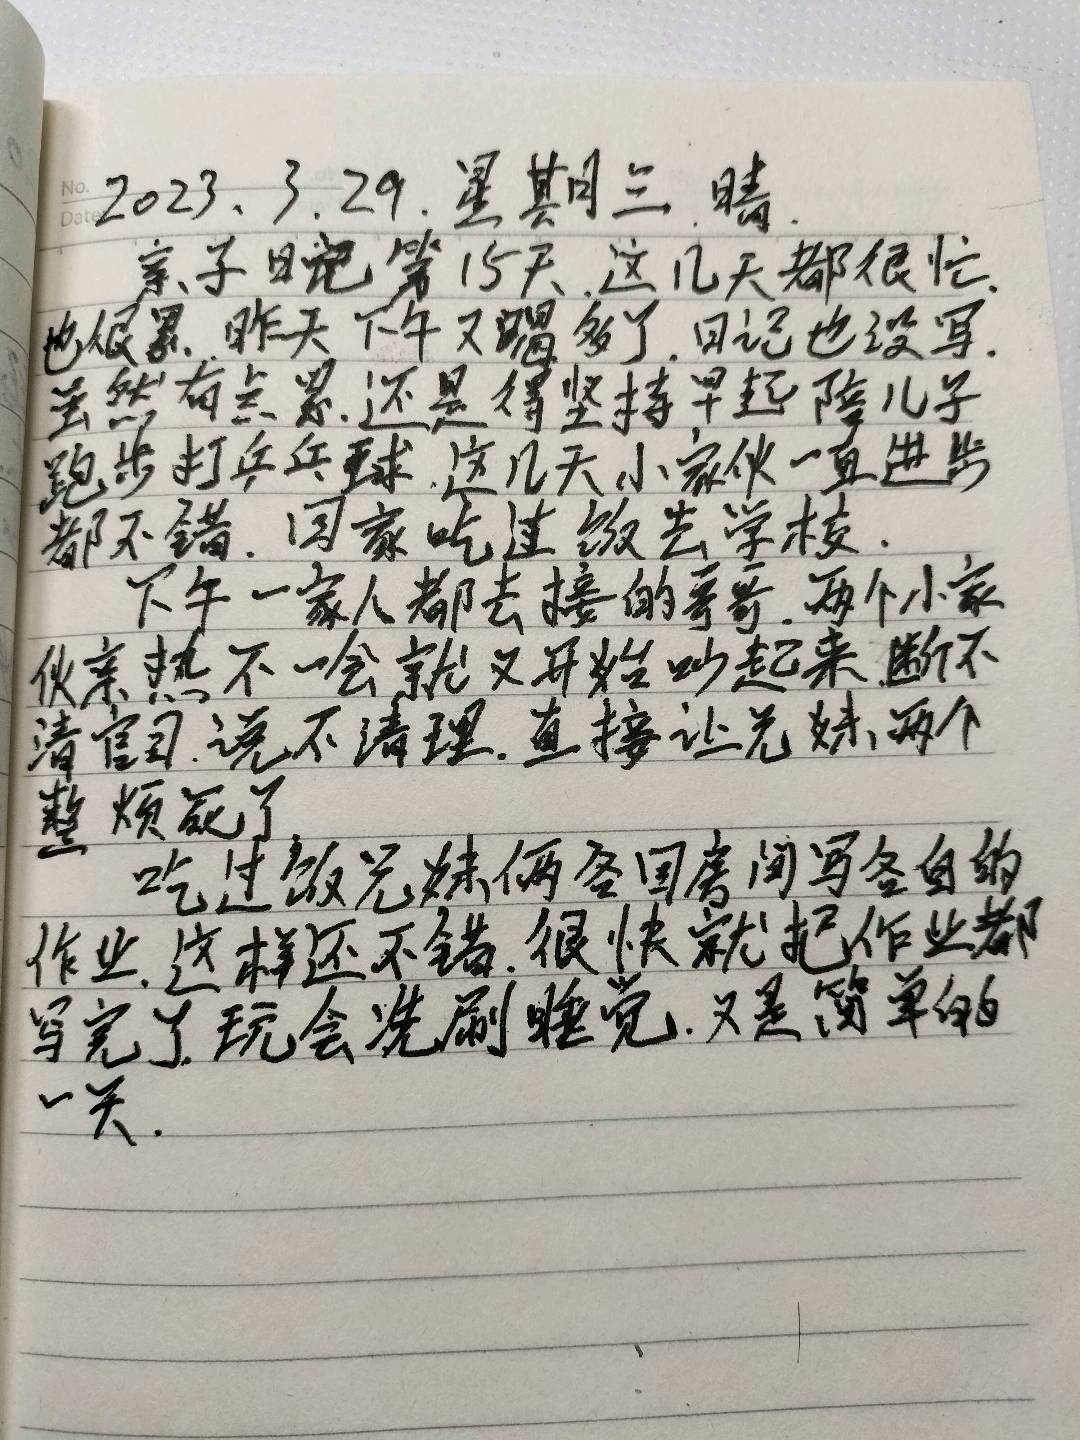 No.
Date
2023、3.29.星期三.晴.
亲子日记第15天.这几天都很忙.
也很累.昨天下午又喝多了.日记也没写.
虽然有点累.还是得坚持早起陪儿子
跑步打乒乓球.这几天小家伙一直进步
都不错.回家吃过饭去学校.
下午一家人都去接的哥哥.两个小家
伙亲热不一会就又开始吵起来.断不
清官司.说不清理.直接让兄妹两个
整烦死了.
吃过饭兄妹俩各回房间写各自的
作业.这样还不错.很快就把作业都
写完了.玩会洗刷睡觉.又是简单的
一天.